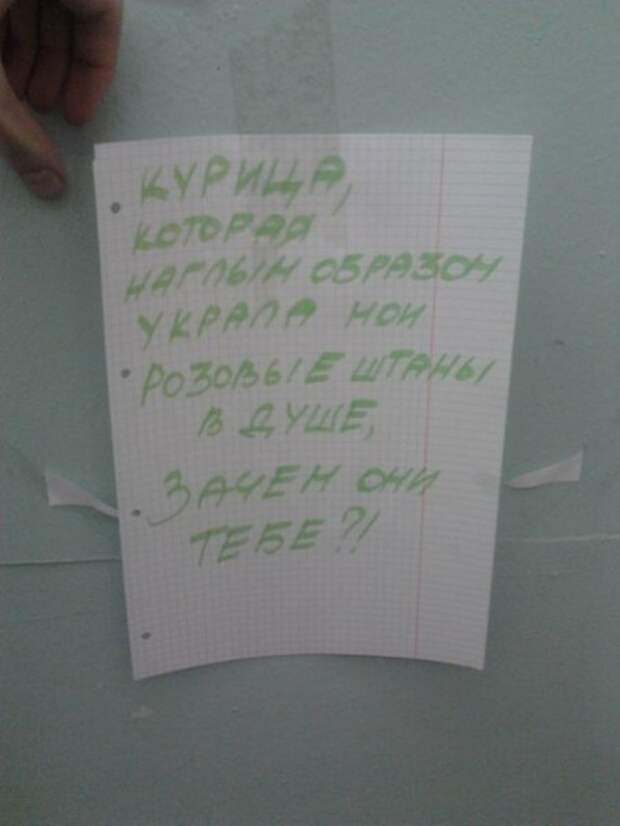 КУРИЦА,
КОТОРАЯ
НАГЛЫМ ОБРАЗОМ
УКРАЛА МОИ
РОЗОВЫЕ ШТАНЫ
В ДУШЕ,
ЗАЧЕМ ОНИ
ТЕБЕ?!